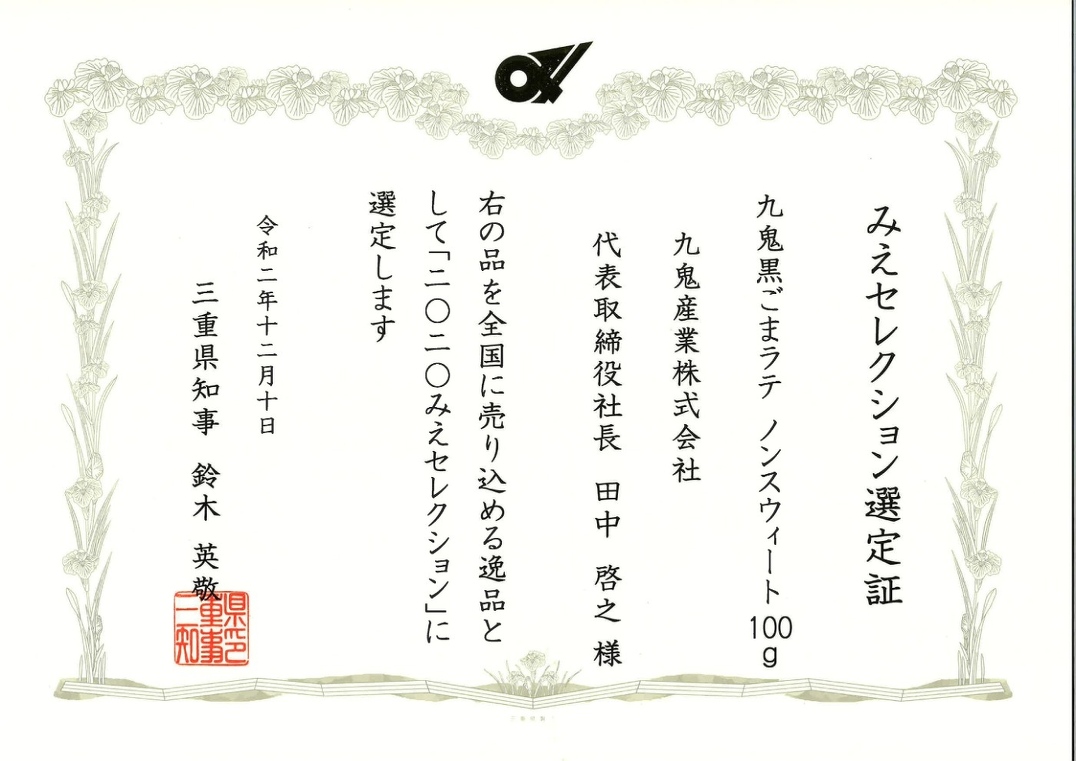 みえセレクション選定証
九鬼黒ごまラテ ノンスウィート100g
九鬼産業株式会社
代表取締役社長 田中 啓之 様
右の品を全国に売り込める逸品と
して「二〇二〇みえセレクション」に
選定します
令和二年十二月十日
三重県知事 鈴木 英敬
三重県知事印